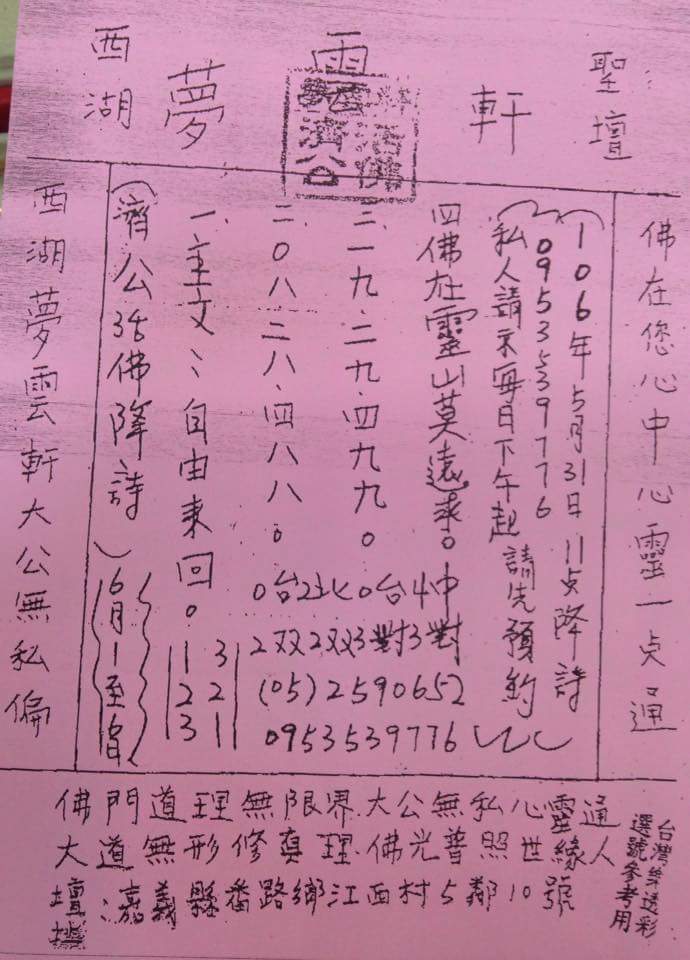 西湖 夢雲軒 聖壇
濟公 活佛
西湖夢雲軒大公無私偏
(濟公活佛降詩) 6月1至
一、主文:自由來回。
123
321
二、0八.二八.四八八。
三、一九.二九.四九九。
四佛在靈山莫遠求。
0台2北0台4中
2双2双3對3對
(05)2590652
0953539776
私人請示每日下午起請先預約
0953539776
(106年5月31日11点降詩)
佛在您心中心靈一点通
佛門道理無限界大公無私心靈通
大道無形修真理佛光普照世緣人
壇:嘉義縣番路鄉江西村5鄰10號
台灣樂透彩
選號參考用